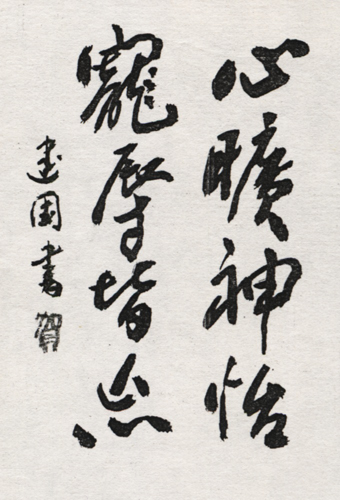 心曠神怡
寵辱皆忘
建國書